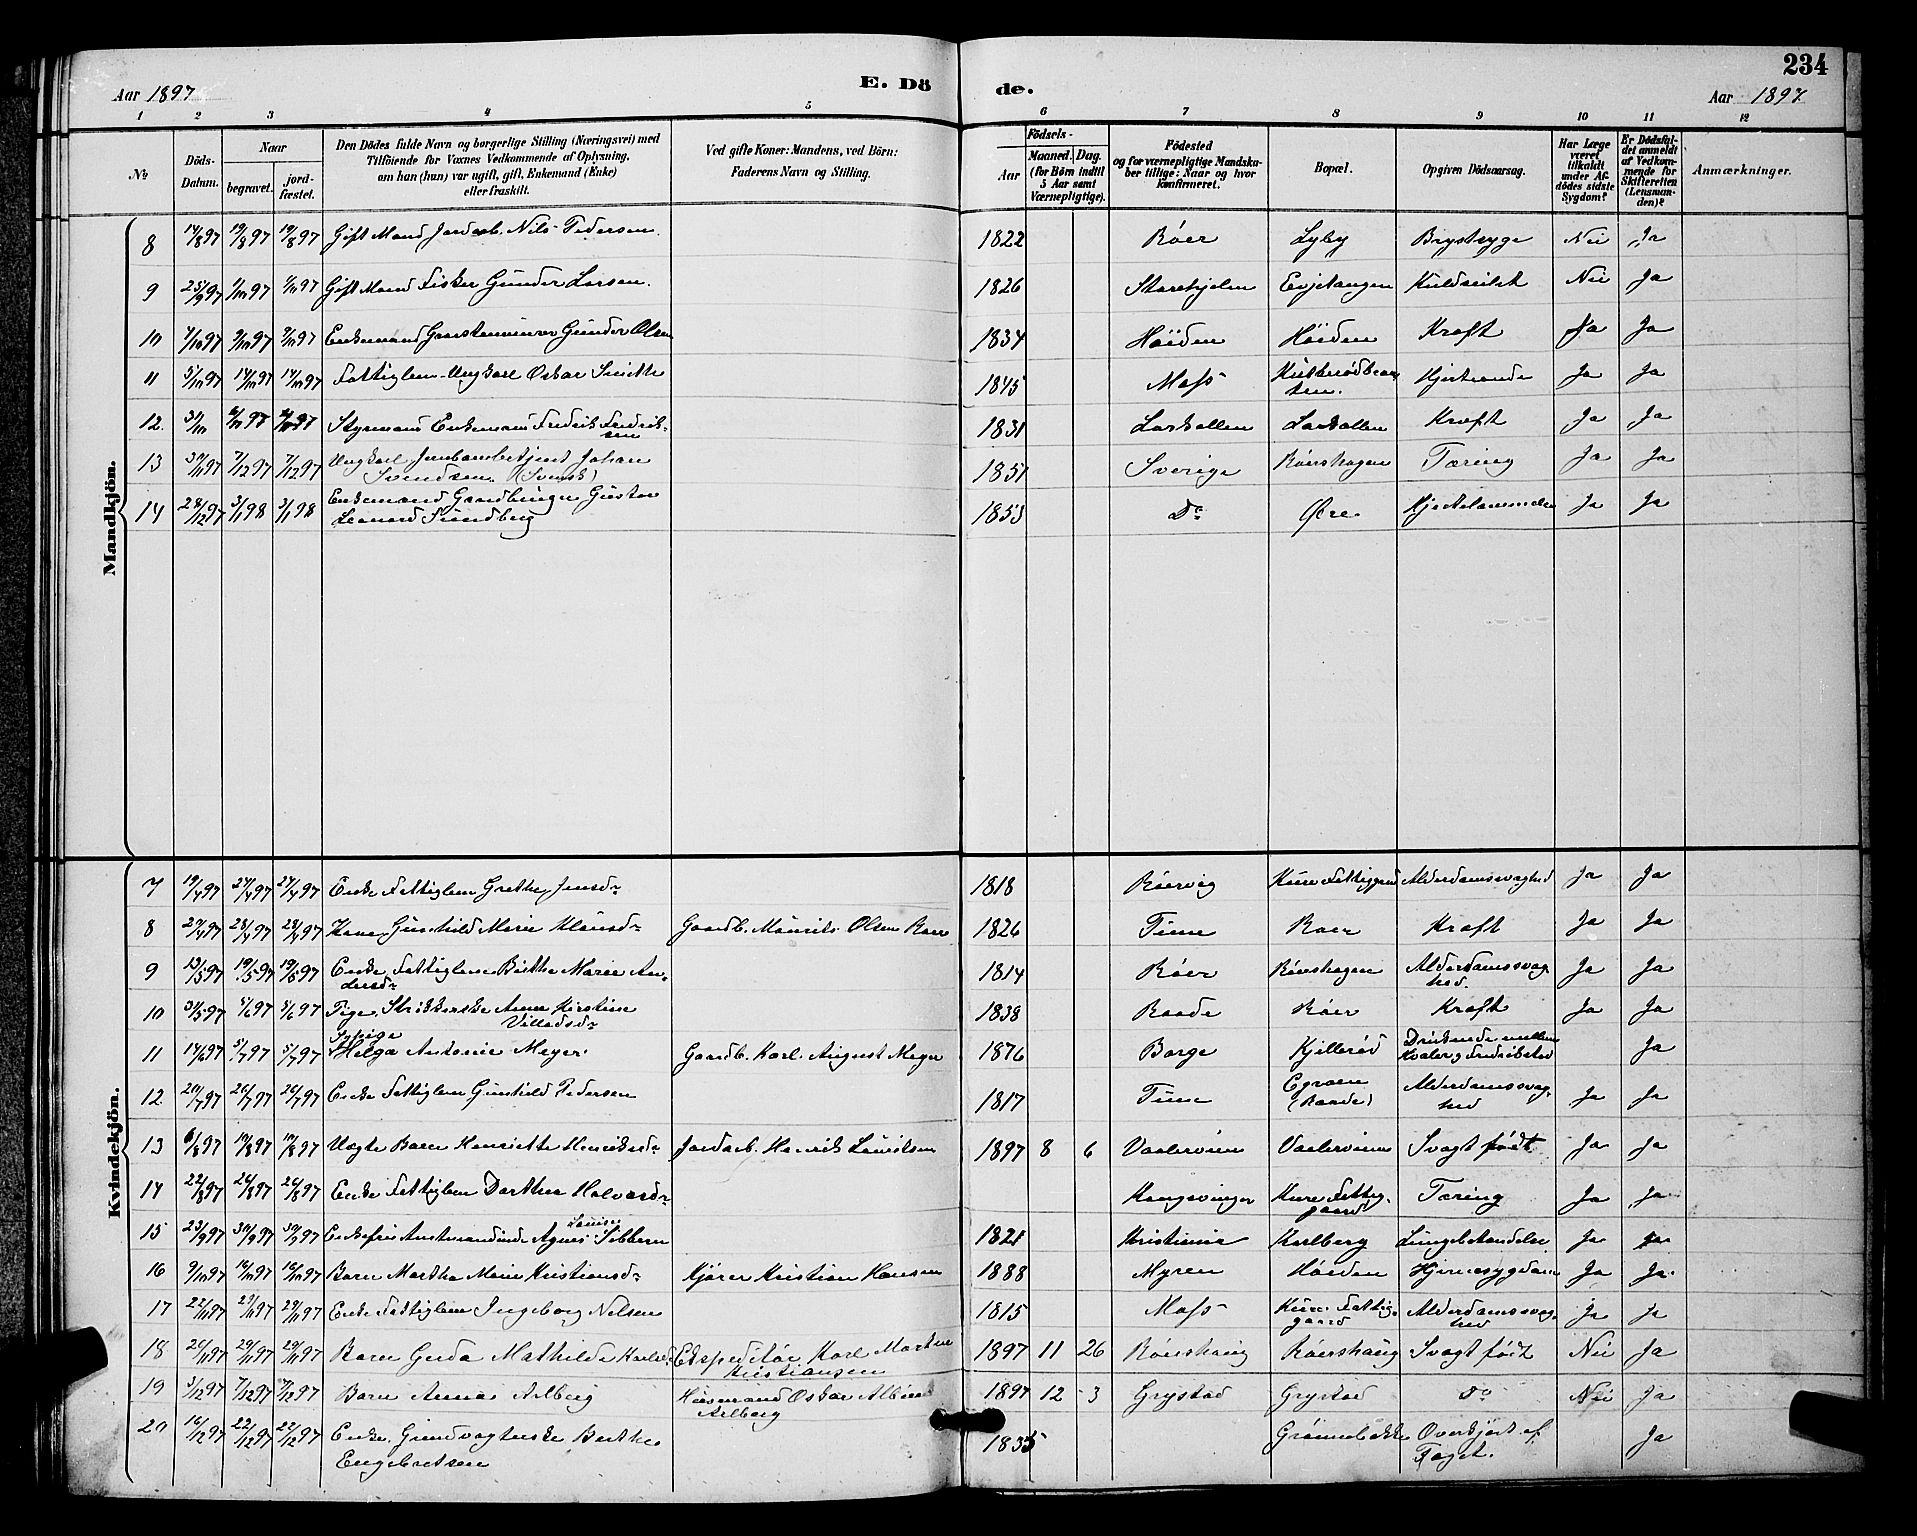 234
Aar 1897 E. Dö de. Aar 1897.
1 2 3 4 5 6 7 8 9 10 11 12
№
Döds-
Datum.
Naar
begravet.
jord-
fæstet.
Den Dödes fulde Navn og borgerlige Stilling (Næringsvei) med
Tilföiende for Voxnes Vedkommende af Oplysning,
om han (hun) var ugift, gift, Enkemand (Enke)
eller fraskilt.
Ved gifte Koner: Mandens, ved Börn:
Faderens Navn og Stilling.
Födsels-
Aar
Maaned. Dag.
(for Börn indtil
5 Aar samt
Værnepligtige).
Födested
og for værnepligtige Mandska-
ber tillige: Naar og hvor
konfirmeret.
Bopæl.
Opgiven Dödsaarsag.
Har Læge
været
tilkaldt
under Af-
dödes sidste
Sygdom?
Er Dödsfal-
det anmeldt
af Vedkom-
mende for
Skifteretten
(Lensman-
den)?
Anmærkninger.
Mandkjön.
8 14/8 97 19/8 97 19/8 97 Gift Mand Jordarb. Nils Pedersen. 1822 Röer Lyby Brystsyge Nei Ja
9 25/9 97 1/10 97 1/10 97 Gift Mand Fisker Gunder Larsen. 1826 Evjetangen Nei Ja
10 1/10 97 9/10 97 9/10 97 Enkemand Graastensmurer Gunder Olsen 1834 Höiden Höiden Kræft Ja Ja
11 5/10 97 14/10 97 14/10 97 Fattiglem Ungkarl Oskar Smith 1845 Moss Hjerteonde Ja Ja
12. 31/10 6/11 97 6/11 97 Styrmand Enkemand Fredrik Fredrik-
sen 1831 Larkollen Larkollen Kræft Ja Ja
13 30/11 97 7/12 97 7/12 97 Ungkarl Jernbanebetjent Johan
Svendsen. (Svensk) 1851 Sverige Röershagen Tæring Ja Ja
14 28/12 97 3/1 98 3/1 98 Enkemand Gaardbruger Gustav
Leonard Sundberg 1853 Do Øre Hjertelammelse Ja Ja
Kvindekjön.
7 19/4 97 27/4 97 27/4 97 Enke Fattiglem Grethe Jensdr 1818 Röervig Kure Fattiggaard Alderdomssvaghed Ja Ja
8 21/4 97 28/4 97 28/4 97 Kone Gunhild Marie Klausdr Gaardb. Maurits Olsen Röer 1826 Tune Röer Kræft Ja Ja
9 13/5 97 19/5 97 19/5 97 Enke Fattiglem Berthe Marie An-
dersdr 1814 Röer Röershagen Alderdomssvag-
hed. Ja Ja
10 31/5 97 5/6 97 5/6 97 Pige. Strikkerske Anne Kirstine
Villadsdr 1838 Raade Röer Kræft Ja Ja
11 14/6 97 5/7 97 5/7 97 Sypige
Helga Antonie Meyer. Gaardb. Karl August Meyer 1876 Borge Kjellerød Druknede mellem
Hvaler og Fredrikstad Ja
12. 20/7 97 26/7 97 26/7 97 Enke Fattiglem Gunhild Pedersen 1817 Tune
(Raade) Alderdomssvag-
hed Ja Ja
13 6/8 97 19/8 97 19/8 97 Uægte Barn Henriette Henriksdr Jordarb. Henrik Lauritsen 1897 8 6 Vaalerveien Vaalerveien Svagt født. Ja Ja
14 22/8 97 26/8 97 26/8 97 Enke Fattiglem Dorthea Halvorsdr Kongsvinger Kure Fattig-
gaard Tæring Ja Ja
15 23/9 97 30/9 97 30/9 97 Enkefru Amtmandinde Agnes Louise Sibbern 1821 Kristiania Karlberg Lungebetændelse Ja Ja
16 9/10 97 16/10 97 16/10 97 Barn Martha Marie Kristiansdr Kjører Kristian Hansen 1888 Myren Höiden Hjernesygdom Ja Ja
17 22/11 97 29/11 97 29/11 97 Enke Fattiglem Ingeborg Nilsen 1815 Moss Kure Fattig-
gaard Alderdomssvag-
hed Ja Ja
18 26/11 97 29/11 97 29/11 97 Barn Gerda Mathilde Karlsdr Ekspeditør Karl Martin
Kristiansen 1897 11 26 Röershaug Röershaug Svagt født Nei Ja
19 3/12 97 7/12 97 7/12 97 Barn Anna Arlberg Husmand Oskar Albin
Arlberg 1897 12 3 Grystad Grystad Do Nei Ja
20 16/12 97 22/12 97 22/12 97 Enke. Grindvogterske Berthe
Engebretsen 1835 Grønnebakke Overkjørt af
Toget. Ja